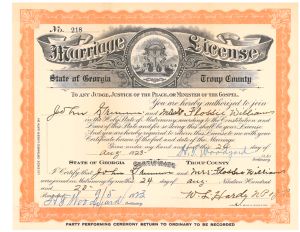 No. 218
Marriage License
State of Georgia Troup County
TO ANY JUDGE, JUSTICE OF THE PEACE, OR MINISTER OF THE GOSPEL.
You are hereby authorized to join
John and Miss Flossie Williams
in the Holy State of Matrimony, according to the Constitution and
Laws of this State and for so doing this shall be your License.
And you are hereby required to return this License to me with your
Certificate hereon of the fact and date of the Marriage.
Given under my hand and seal this 24 day of
Aug
STATE OF GEORGIA CERTIFICATE TROUP COUNTY
I Certify that John and Miss Flossie Williams
were joined in Matrimony by me this 24 day of Aug. Nineteen Hundred
and 23
W. L. Hardy N.P.
PARTY PERFORMING CEREMONY RETURN TO ORDINARY TO BE RECORDED